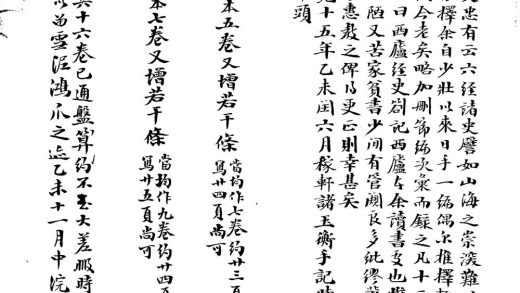 忠有云六經諸史譬如山海之崇深難
擇余自少壯以來日手一編偶尔推擇
今老矣略加刪節編次彙而錄之凡十
曰西廬經史劄記西廬余讀書
陋又苦家貧書少間有管闚良多紕繆
惠教之俾得更正則幸甚矣
十五年乙未閏六月稼軒諸玉衡手記時
頭
本五卷又增若干條
當均作七卷約廿三頁
寫廿四頁尚可
本七卷又增若干條
當均作九卷約廿四頁
寫廿五頁尚可
共十六卷已通盤算約不甚大差暇時
留雪泥鴻爪之迹乙未十一月中浣